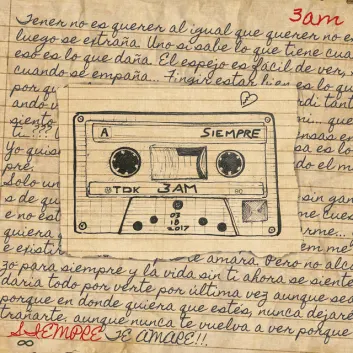 3am
Tener no es querer al igual que querer no e
luego se extraña. Uno si sabe lo que tiene cua
eso es lo que daña. El espejo es fácil de ver,
cuando se empaña... Fingir estar bien es lo qu
A
SIEMPRE
TDK
3AM
03
18
2017
Yo quis
pre
Solo un
s de qu
e no est
quiera
e existir
te amara. Pero no alc
zo para siempre y la vida sin ti ahora se siente
daria todo por verte por última vez aunque sea
porque en donde quiera que estes, nunca dejaré
trañarte, aunque nunca te vuelva a ver porque
SIEMPRE TE AMARE!!